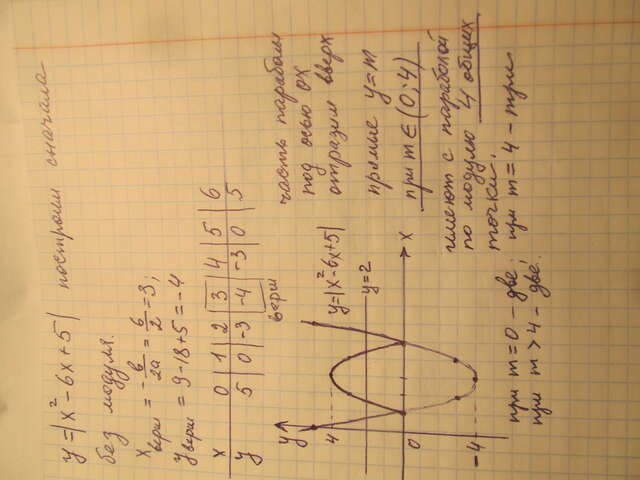 y = |x² - 6x + 5| построим сначала
без модуля.
x верш = -в/2a = 6/2 = 3;
y верш = 9 - 18 + 5 = -4
x | 0 | 1 | 2 | 3 | 4 | 5 | 6
y | 5 | 0 | -3 | -4 | -3 | 0 | 5
верш
y
4
y = |x² - 6x + 5|
y = 2
0
x
-4
часть параболы
под осью ox
отразим вверх
прямые y = m
при m ∈ (0; 4)
имеют с параболой
по модулю 4 общих
точки.
при m = 0 - две; при m = 4 - три
при m > 4 - две.